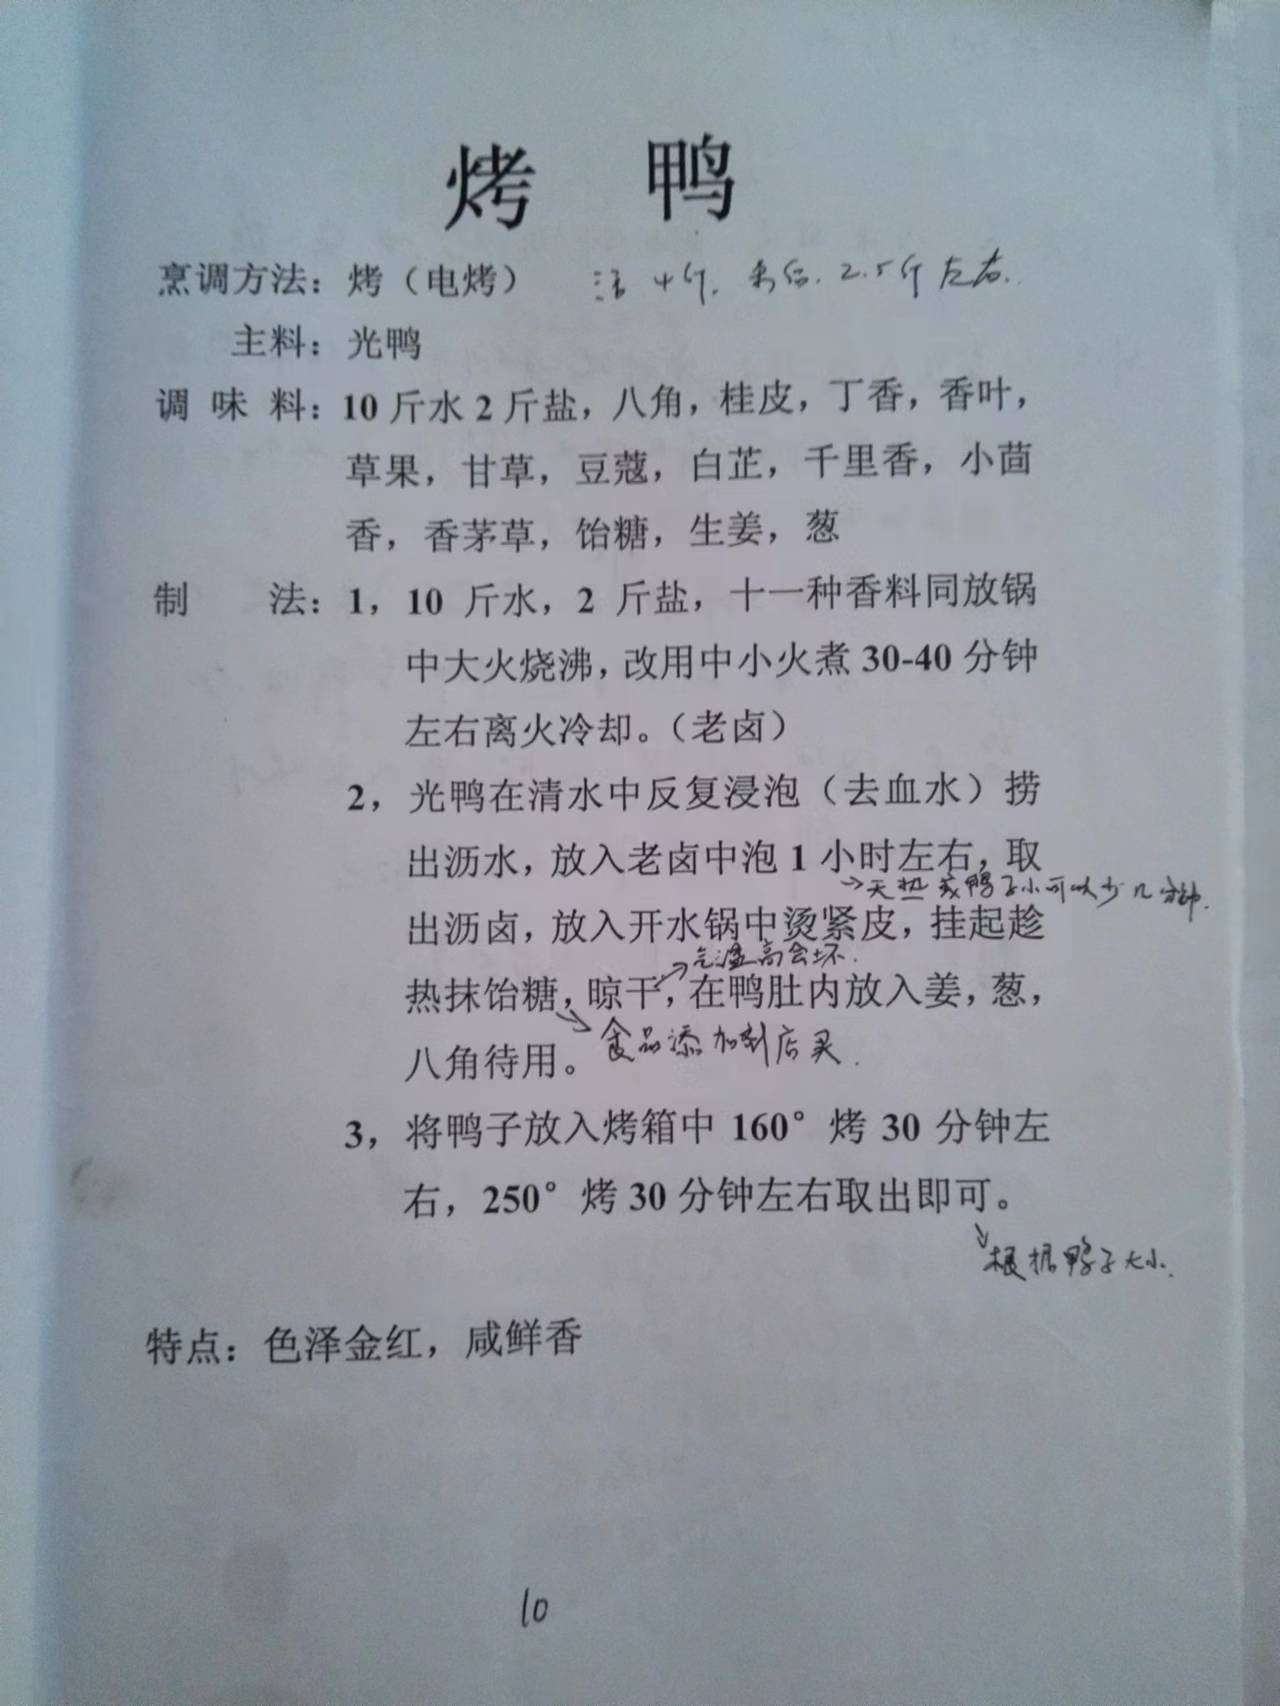 烤 鸭
烹调方法：烤（电烤） 活4斤. 杀后. 2.5斤左右.
主料：光鸭
调 味 料：10斤水2斤盐，八角，桂皮，丁香，香叶，
草果，甘草，豆蔻，白芷，千里香，小茴
香，香茅草，饴糖，生姜，葱
制 法：1，10 斤水，2 斤盐，十一种香料同放锅
中大火烧沸，改用中小火煮 30-40 分钟
左右离火冷却。（老卤）
2，光鸭在清水中反复浸泡（去血水）捞
出沥水，放入老卤中泡 1 小时左右，取
→天热或鸭子小可以少几分钟.
出沥卤，放入开水锅中烫紧皮，挂起趁
→气温高会坏.
热抹饴糖，晾干，在鸭肚内放入姜，葱，
→食品添加剂店买.
八角待用。
3，将鸭子放入烤箱中 160° 烤 30 分钟左
右，250° 烤 30 分钟左右取出即可。
→根据鸭子大小.
特点：色泽金红，咸鲜香
10